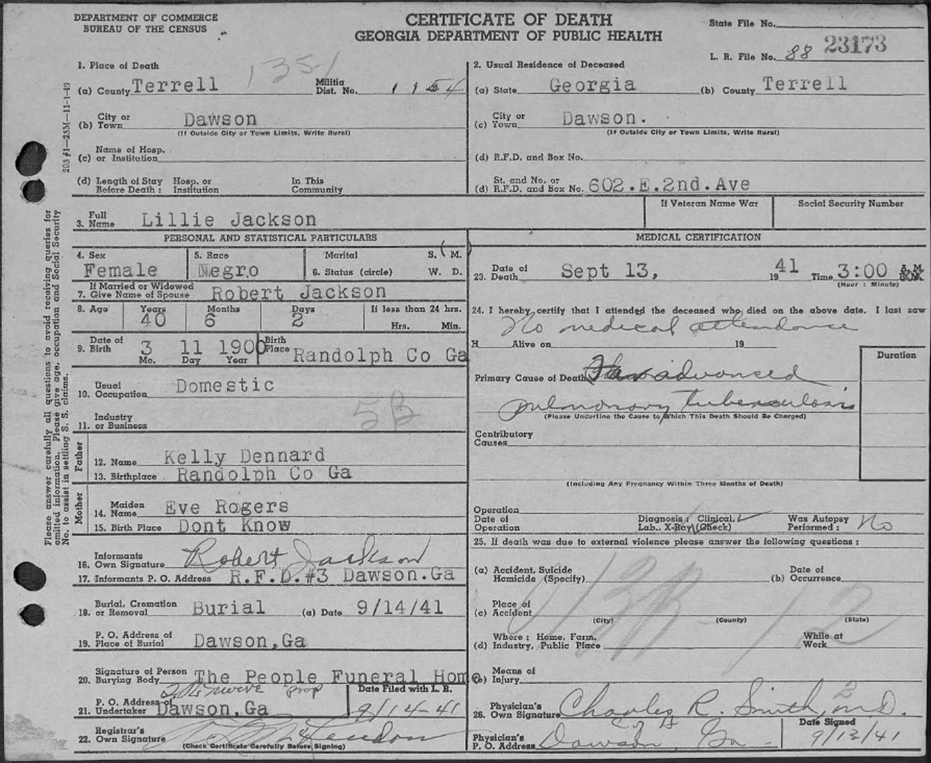 DEPARTMENT OF COMMERCE
BUREAU OF THE CENSUS
CERTIFICATE OF DEATH
GEORGIA DEPARTMENT OF PUBLIC HEALTH
State File No.
L. R. File No. 88 23173
203 #1—25M—11-1-40
Please answer carefully all questions to avoid receiving queries for
omitted information. Please give age, occupation and Social Security
No. to assist in settling S. S. claims.
1. Place of Death 1351
(a) County Terrell Militia Dist. No. 1154
(b) City or Town Dawson
(If Outside City or Town Limits, Write Rural)
(c) Name of Hosp. or Institution
(d) Length of Stay Before Death: Hosp. or Institution In This Community
2. Usual Residence of Deceased
(a) State Georgia (b) County Terrell
(c) City or Town Dawson.
(If Outside City or Town Limits, Write Rural)
(d) R.F.D. and Box No.
(d) St. and No. or R.F.D. and Box No. 602.E.2nd.Ave
3. Full Name Lillie Jackson
If Veteran Name War Social Security Number
PERSONAL AND STATISTICAL PARTICULARS
4. Sex Female 5. Race Negro 6. Marital Status (circle) S. M. W. D.
7. If Married or Widowed Give Name of Spouse Robert Jackson
8. Age Years 40 Months 6 Days 2 If less than 24 hrs. Hrs. Min.
9. Date of Birth 3 11 1900 Birth Place Randolph Co Ga
Mo. Day Year
10. Usual Occupation Domestic
11. Industry or Business
5B
Father
12. Name Kelly Dennard
13. Birthplace Randolph Co Ga
Mother
14. Maiden Name Eve Rogers
15. Birth Place Dont Know
16. Informants Own Signature Robert Jackson
17. Informants P. O. Address R.F.D.#3 Dawson.Ga
18. Burial, Cremation or Removal Burial (a) Date 9/14/41
19. P. O. Address of Place of Burial Dawson,Ga
20. Signature of Person Burying Body The People Funeral Home
prop
21. P. O. Address of Undertaker Dawson,Ga Date Filed with L. R. 9/14-41
22. Registrar's Own Signature
(Check Certificate Carefully Before Signing)
MEDICAL CERTIFICATION
23. Date of Death Sept 13, 1941 Time 3:00 A.M.
(Hour : Minute)
24. I hereby certify that I attended the deceased who died on the above date. I last saw
No medical attendance
H Alive on 19
Duration
Primary Cause of Death Far advanced
pulmonary tuberculosis
(Please Underline the Cause to Which This Death Should Be Charged)
Contributory Causes
(Including Any Pregnancy Within Three Months of Death)
Operation
Date of Operation Diagnosis: Clinical, Lab., X-Ray (Check) Was Autopsy Performed: No
25. If death was due to external violence please answer the following questions:
(a) Accident, Suicide Homicide (Specify) (b) Date of Occurrence
(c) Place of Accident
(City) (County) (State)
(d) Where: Home, Farm, Industry, Public Place While at Work
(e) Means of Injury
26. Physician's Own Signature Charles R. Smith, M.D.
Physician's P. O. Address Dawson, Ga Date Signed 9/13/41